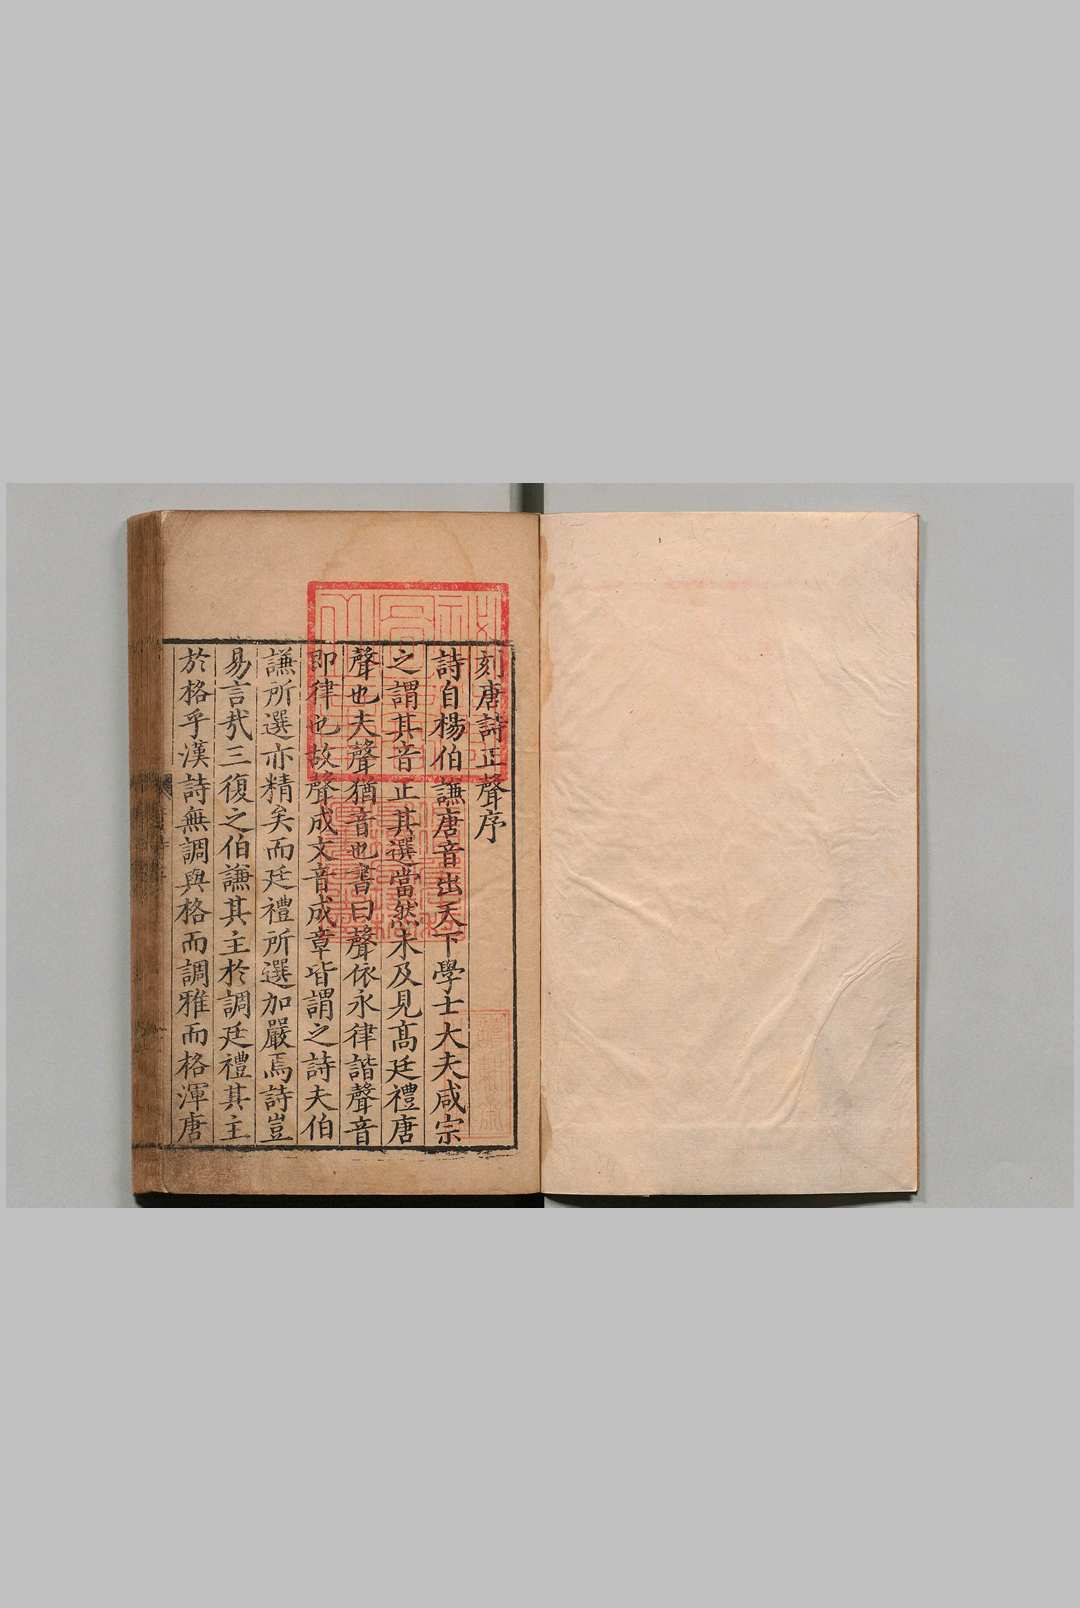 刻唐詩正聲序
詩自楊伯謙唐音出天下學士大夫咸宗
之謂其音正其選當然未及見高廷禮唐
聲也夫聲猶音也書曰聲依永律諧聲音
即律也故聲成文音成章皆謂之詩夫伯
謙所選亦精矣而廷禮所選加嚴焉詩豈
易言哉三復之伯謙其主於調廷禮其主
於格乎漢詩無調與格而調雅而格渾唐